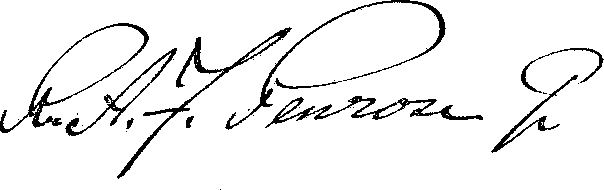 R. A. F. Penrose Jr